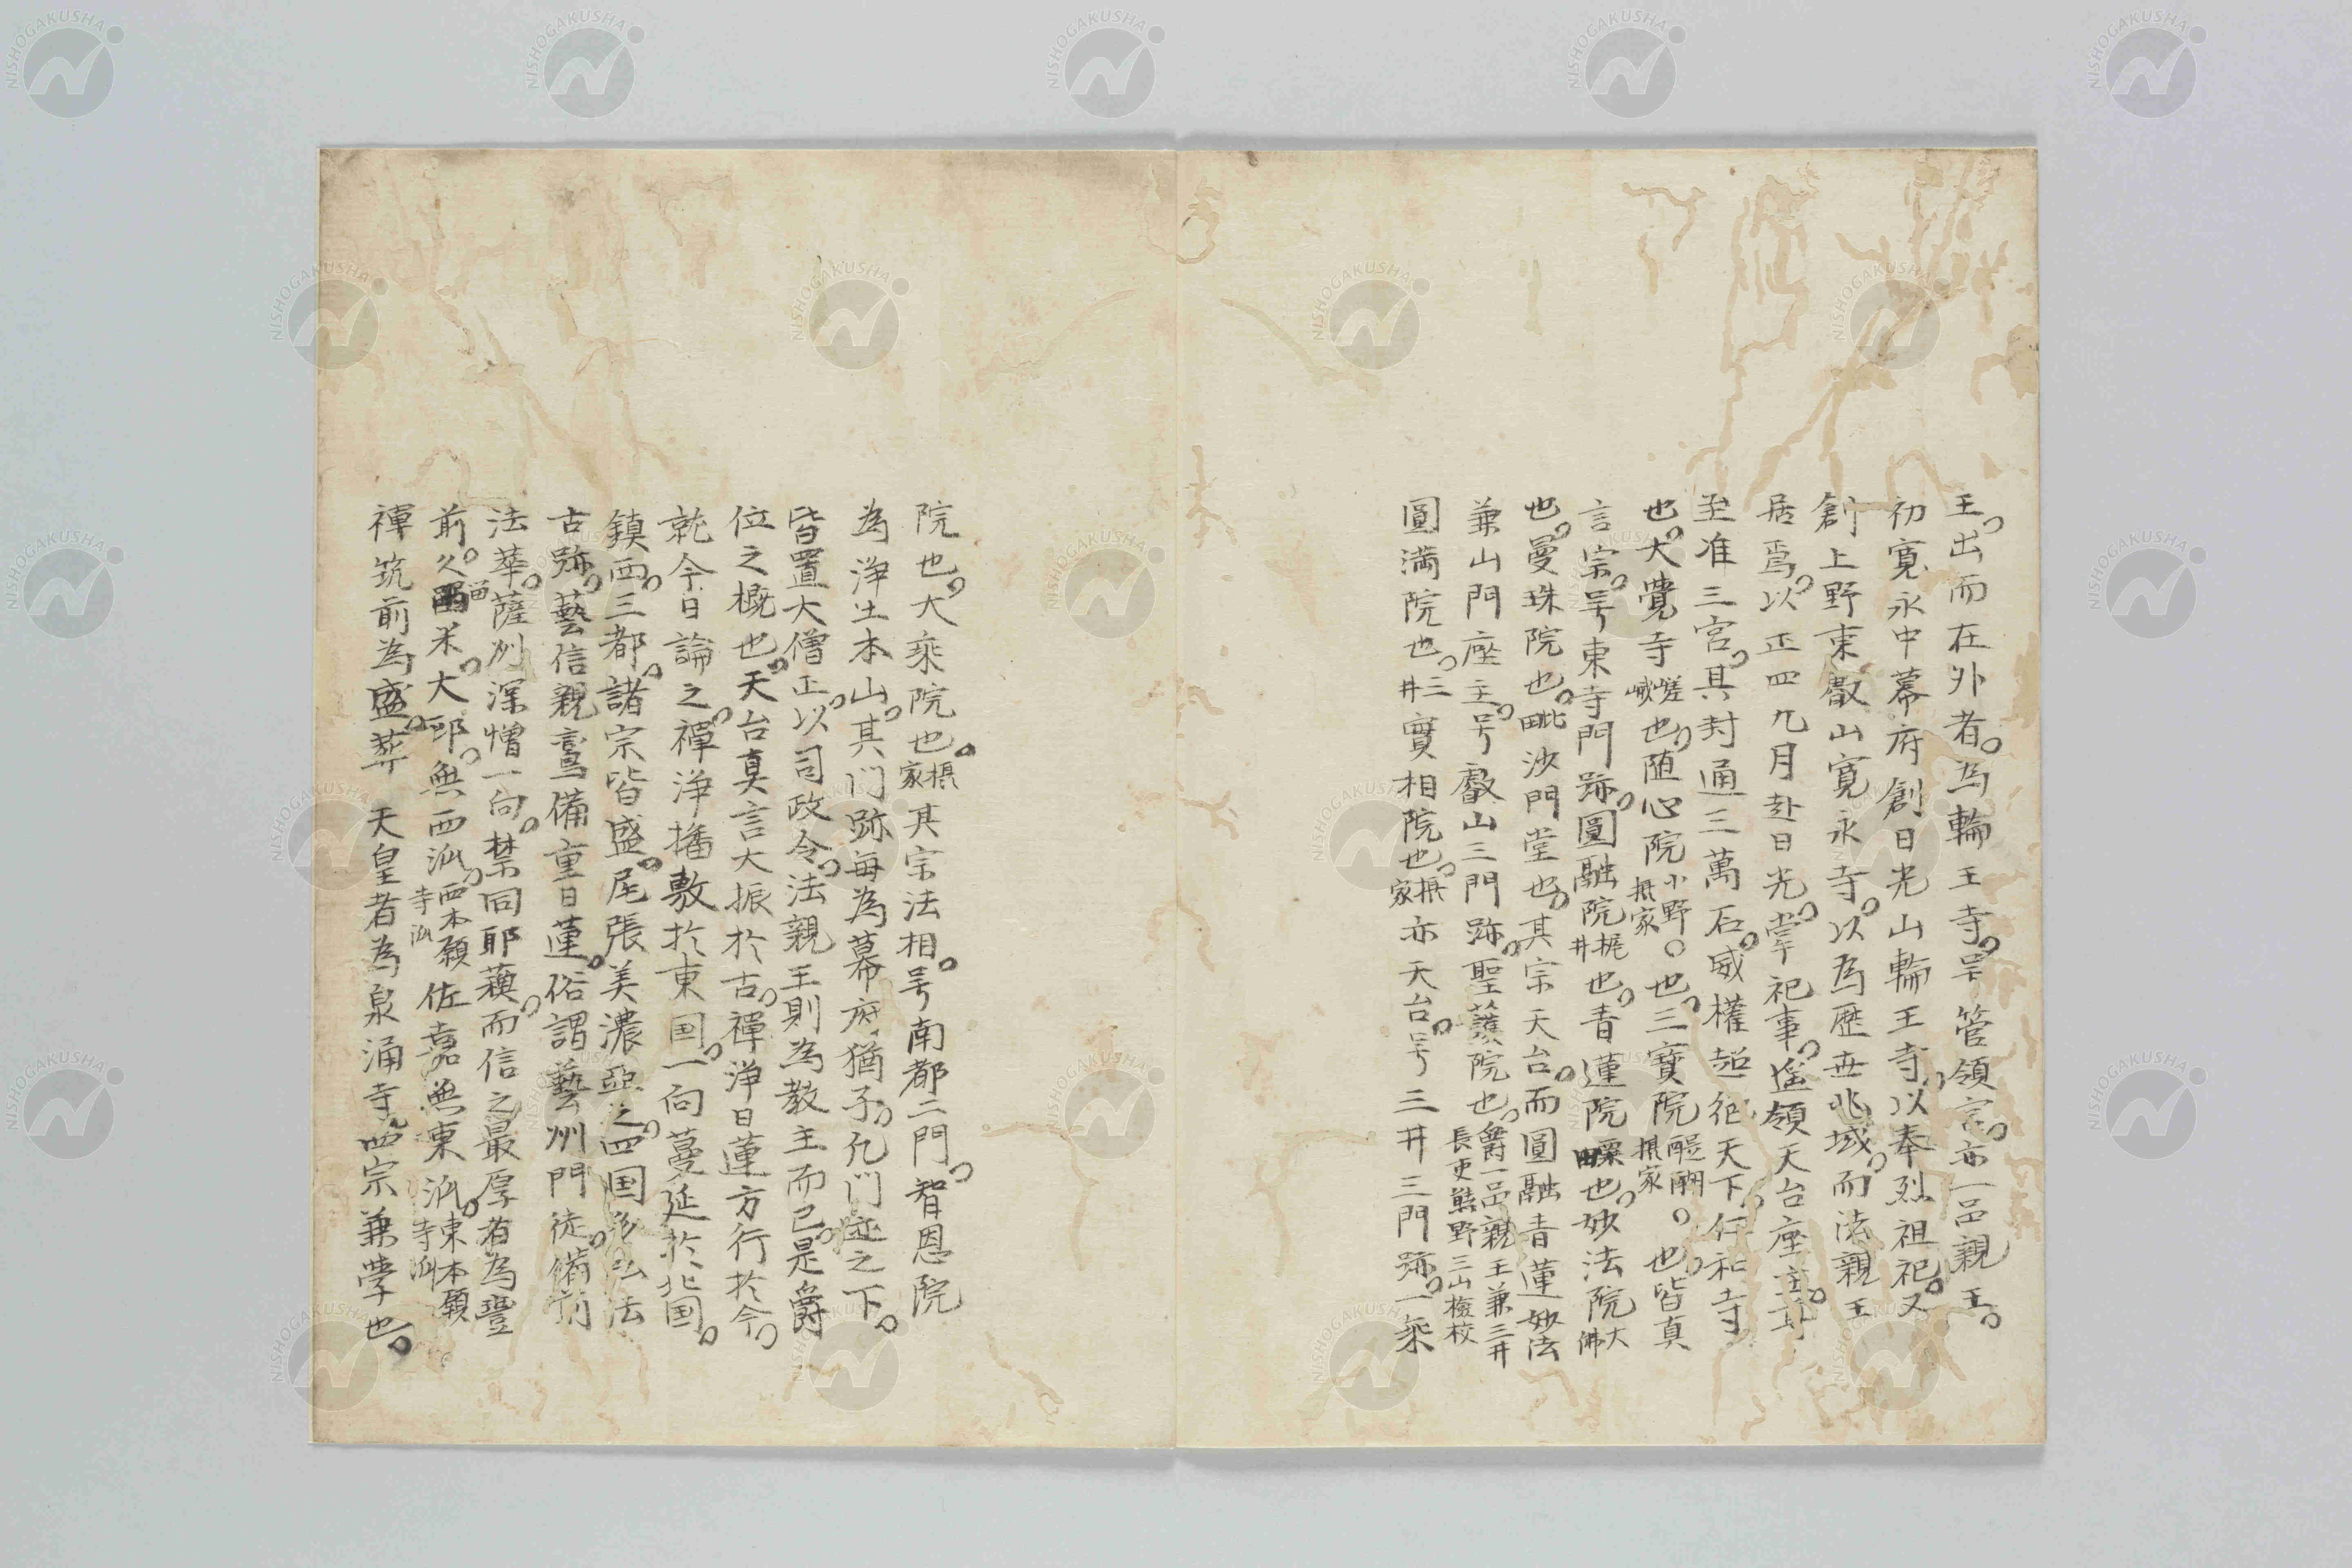 王。出而在外者。為輪王寺。号管領宮。亦一品親王。
初寛永中幕府創日光山輪王寺。以奉烈祖祀。又
創上野東叡山寛永寺。以為歴世兆域。而法親王
居焉。以正四九月赴日光。掌祀事。遥領天台座主。
至准三宮。其封通三萬石。威權超絶天下。仁和寺
也。大覺寺嵯峨也。随心院小野。摂家也。三寶院醍醐。摂家也。皆真
言宗。号東寺門跡。圓融院梶井也。青蓮院粟田也。妙法院大佛
也。曼珠院也。毗沙門堂也。其宗天台。而圓融青蓮妙法
兼山門座主。号叡山三門跡。聖護院也。爵一品親王兼三井長吏熊野三山檢校
圓満院也。三井實相院也。摂家亦天台。号三井三門跡。一乘
院也。大乘院也。摂家其宗法相。号南都二門。智恩院
為淨土本山。其门跡每為幕府猶子。凡门迹之下。
皆置大僧正。以司政令。法親王則為教主而已。是爵
位之概也。天台真言大振於古。禪淨日蓮方行於今。
就今日論之。禪淨播敷於東国。一向蔓延於北国。
鎮西。三都。諸宗皆盛。尾張美濃亞之。四国多弘法
古跡。藝信親鸞備重日蓮。俗謂藝州門徒。備前
法華。薩州深憎一向。禁同耶蘓。而信之最厚者為豐
前。久留米。大邱。無西派。西本願寺派佐嘉無東派。東本願寺派
禪筑前為盛。葬 天皇者為泉涌寺。四宗兼學也。
NISHOGAKUSHA